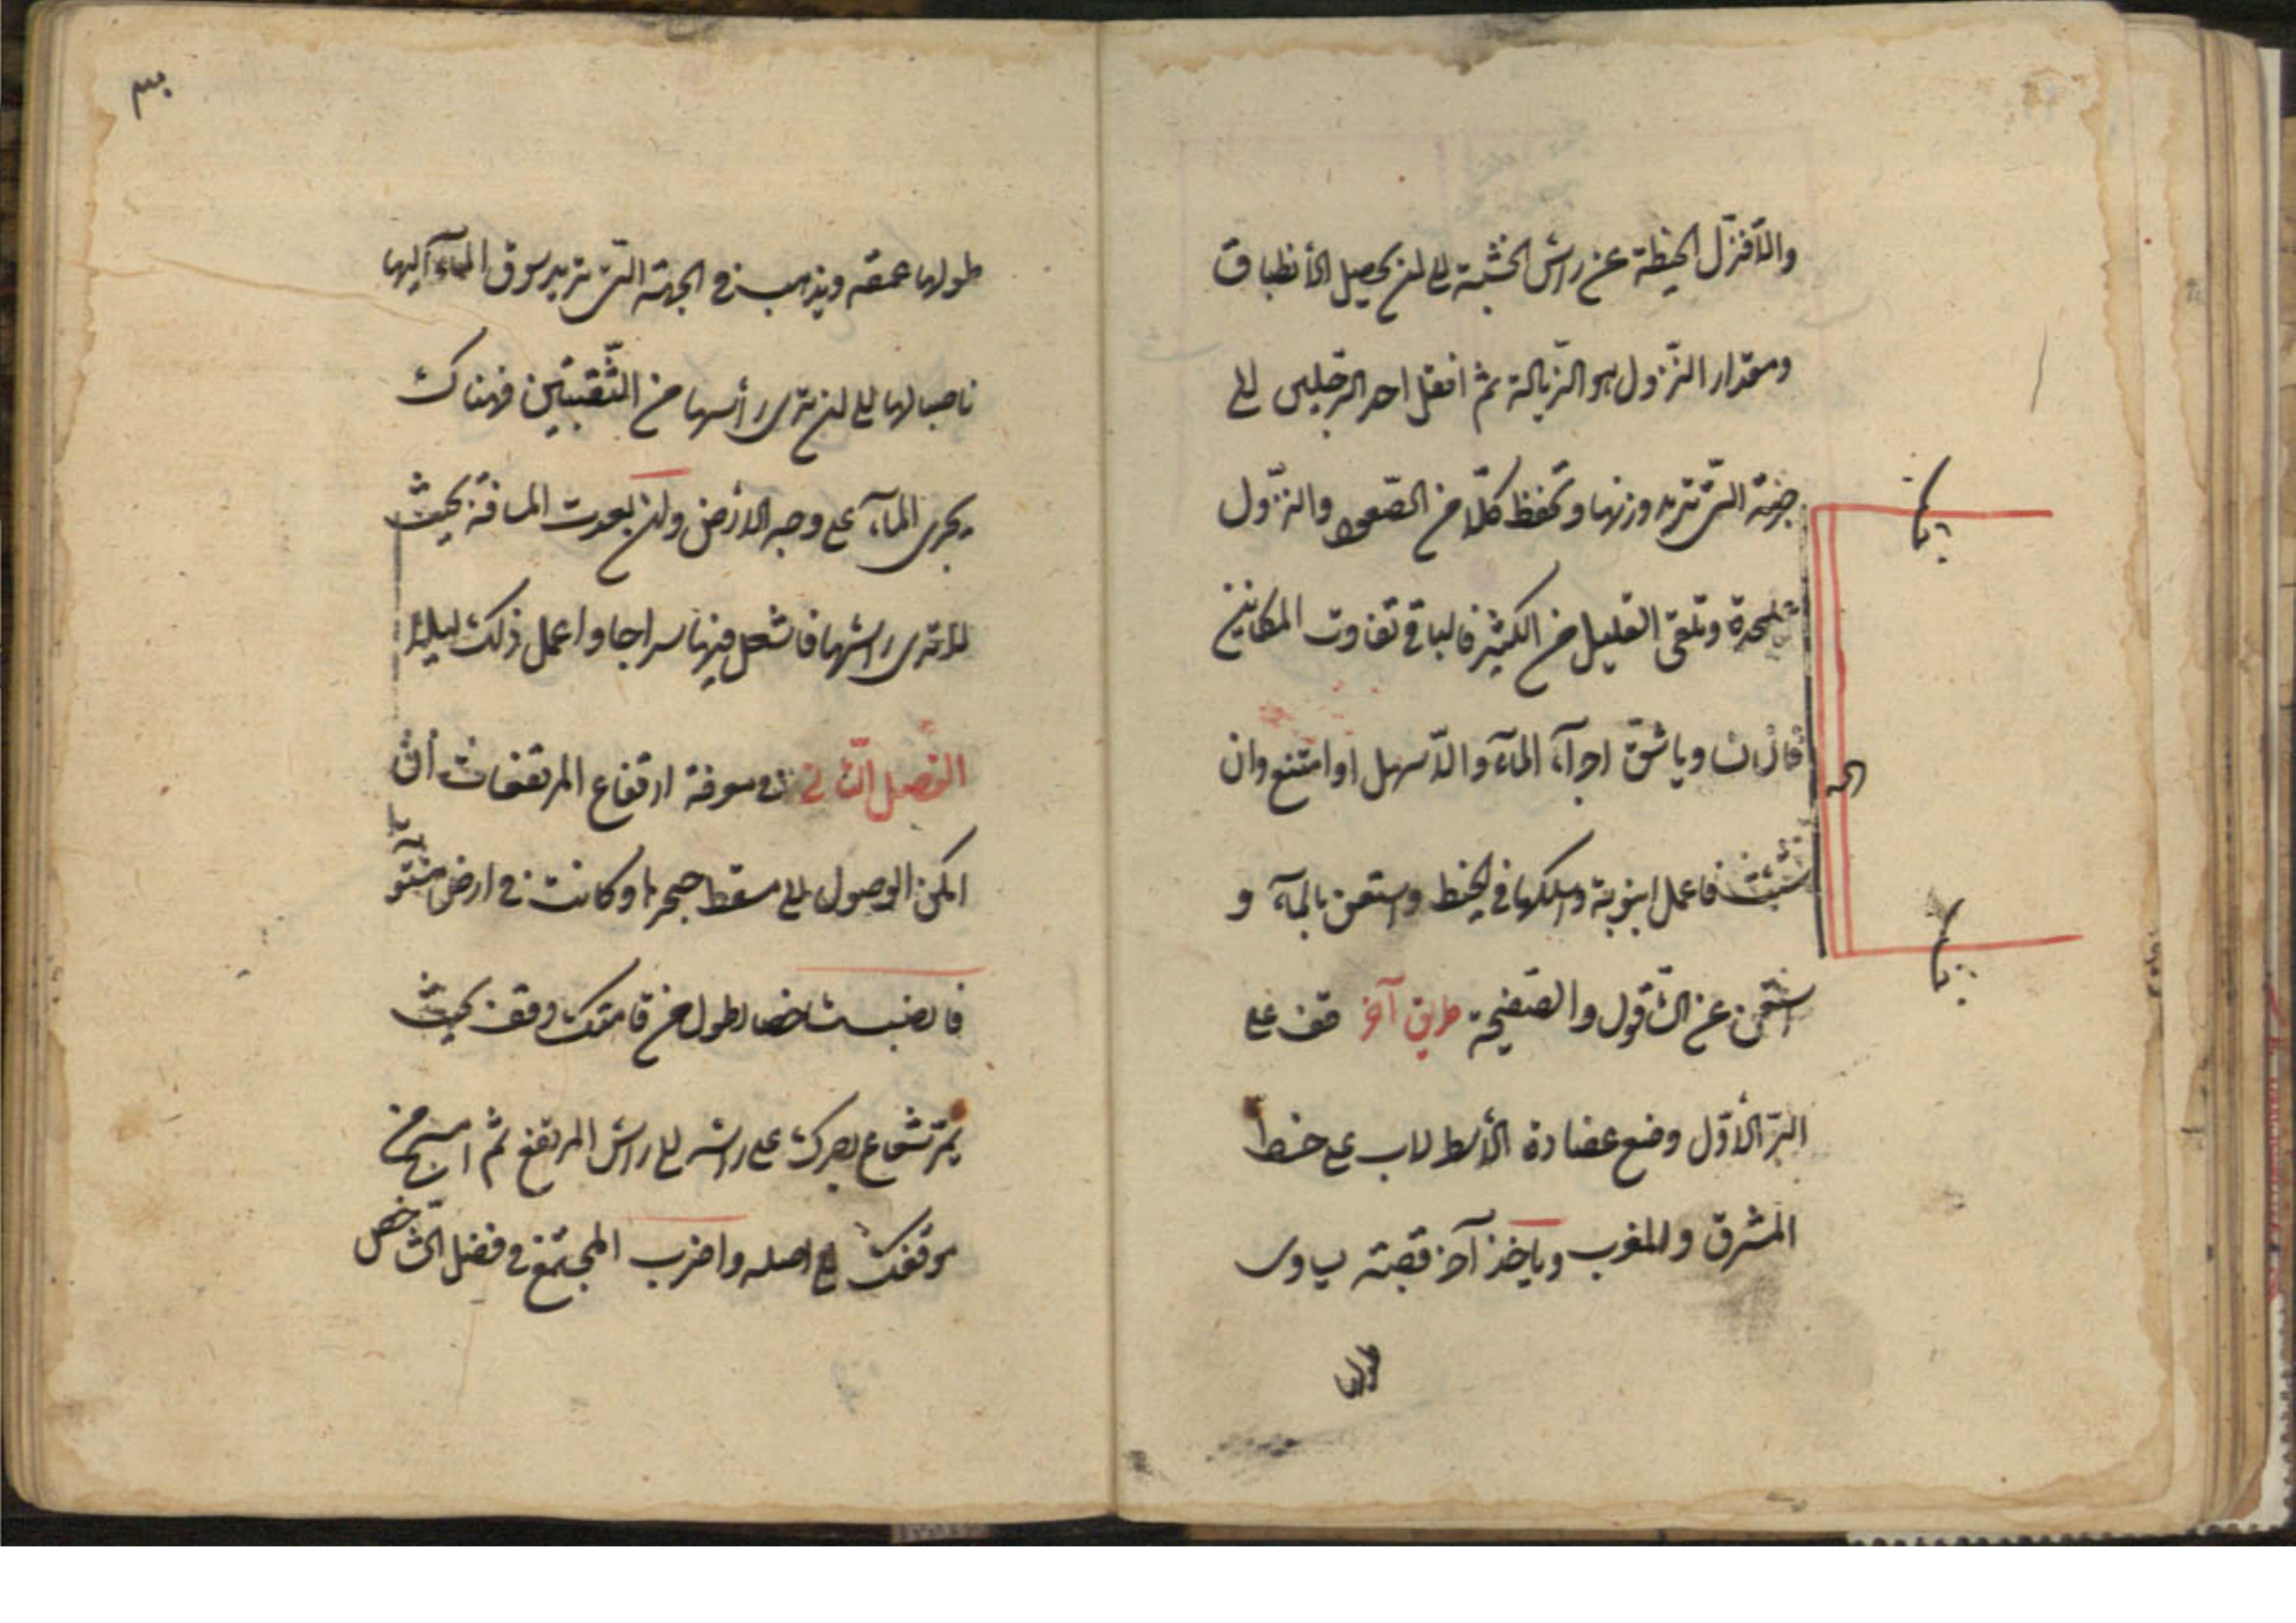 والا فنزل الخيط عن راس الخشبة الى ان يحصل الأنطباق
ومقدار النزول هو الزيالة ثم انقل احد الرجلين الى
جهة التى تريد وزنها وتحفظ كلا من الصعود والنزول
على حدة وتلقى القليل من الكثير فالباقى تفاوت المكانين
فان تساويا شق اجراء المآء والا سهل او امتنع وان
شئت فاعمل انبوبة واسلكها فى الخيط واستعن بالمآء و
استغن عن الشاقول والصفيحة طريق آخر قف على
البئر الأول وضع عضادة الأسطرلاب على خط
المشرق والمغرب وياخذ آخر قصبة يساوى
طولها
طولها عمقه ويذهب فى الجهة التى تريد سوق المآء اليها
ناصبا لها الى ان ترى رأسها من الثقبتين فهناك
يجرى المآء على وجه الارض وان بعدت المسافة بحيث
لا ترى راسها فاشعل فيها سراجا واعمل ذلك ليلا
الفصل الثانى فى معرفة ارتفاع المرتفعات ان
امكن الوصول الى مسقط حجرها وكانت فى ارض مستوية
فانصب شاخصا اطول من قامتك وقف بحيث
يمر شعاع بصرك على راسه الى راس المرتفع ثم امسح من
موقفك الى اصله واضرب المجتمع فى فضل الشاخص